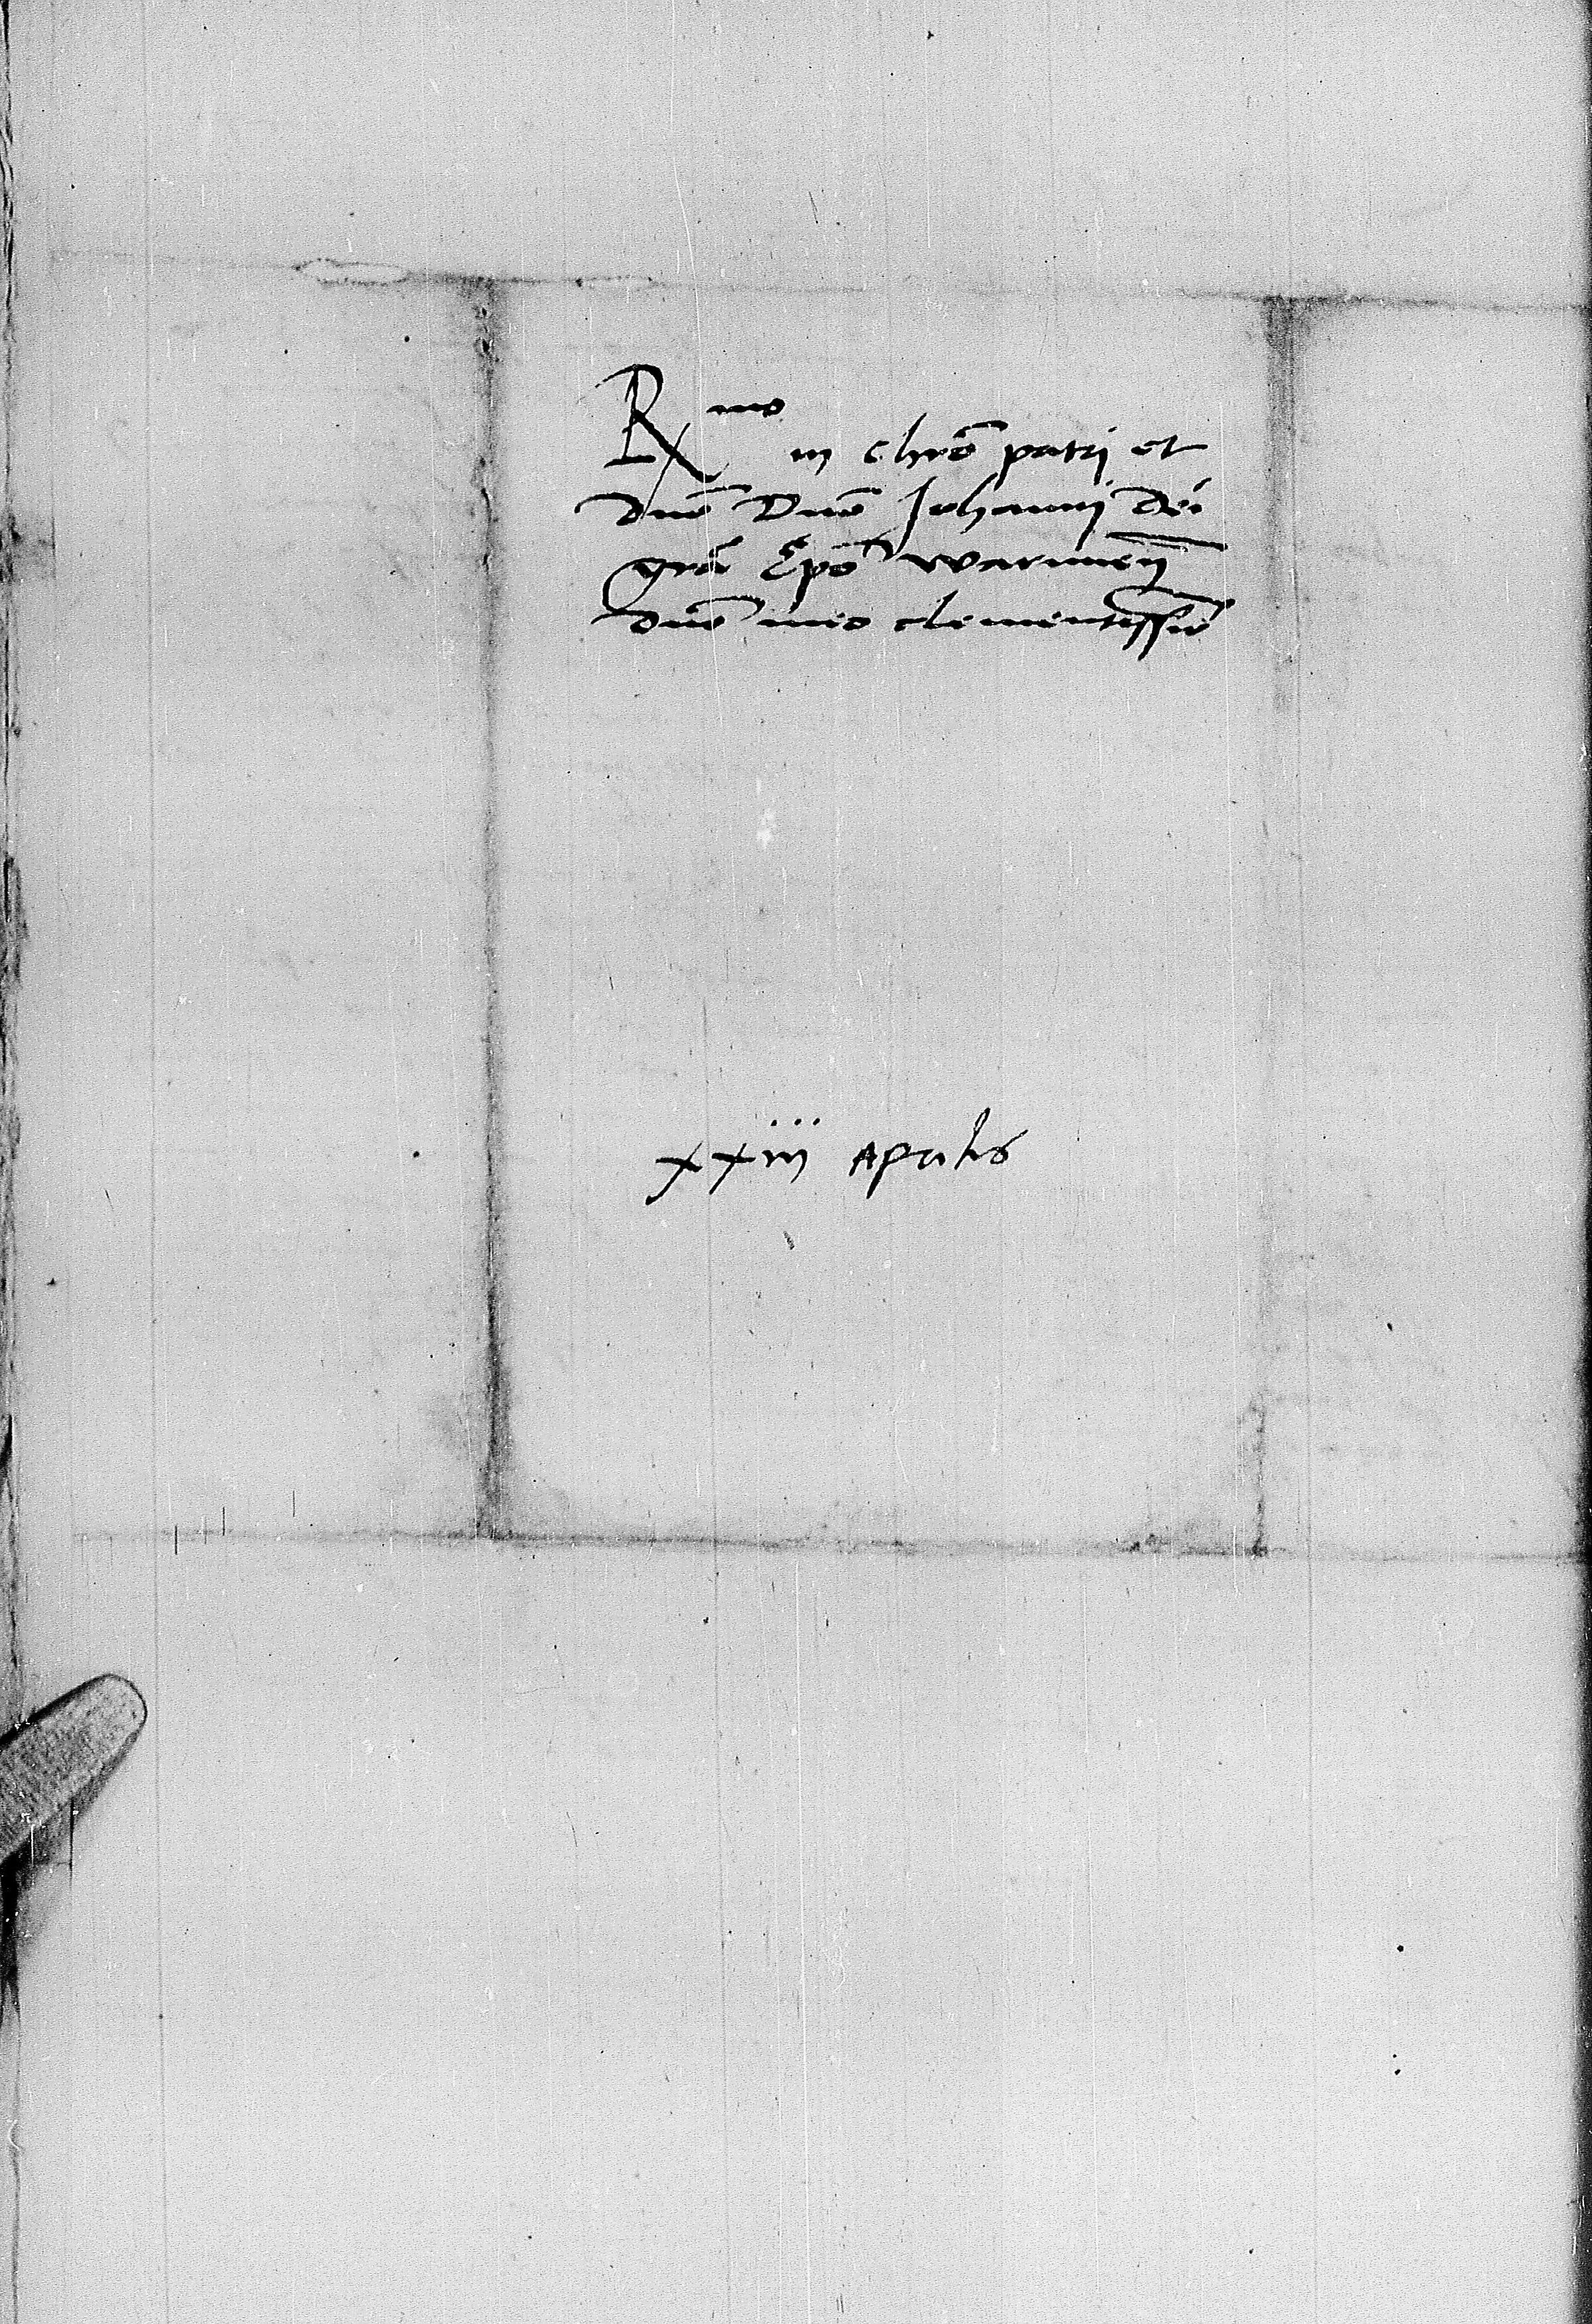 Rmo in chrō patri et
dnō Dnō Johannj dei
grā Epō warmieñ
dnō meo clementissīo
xxiii Aprilis